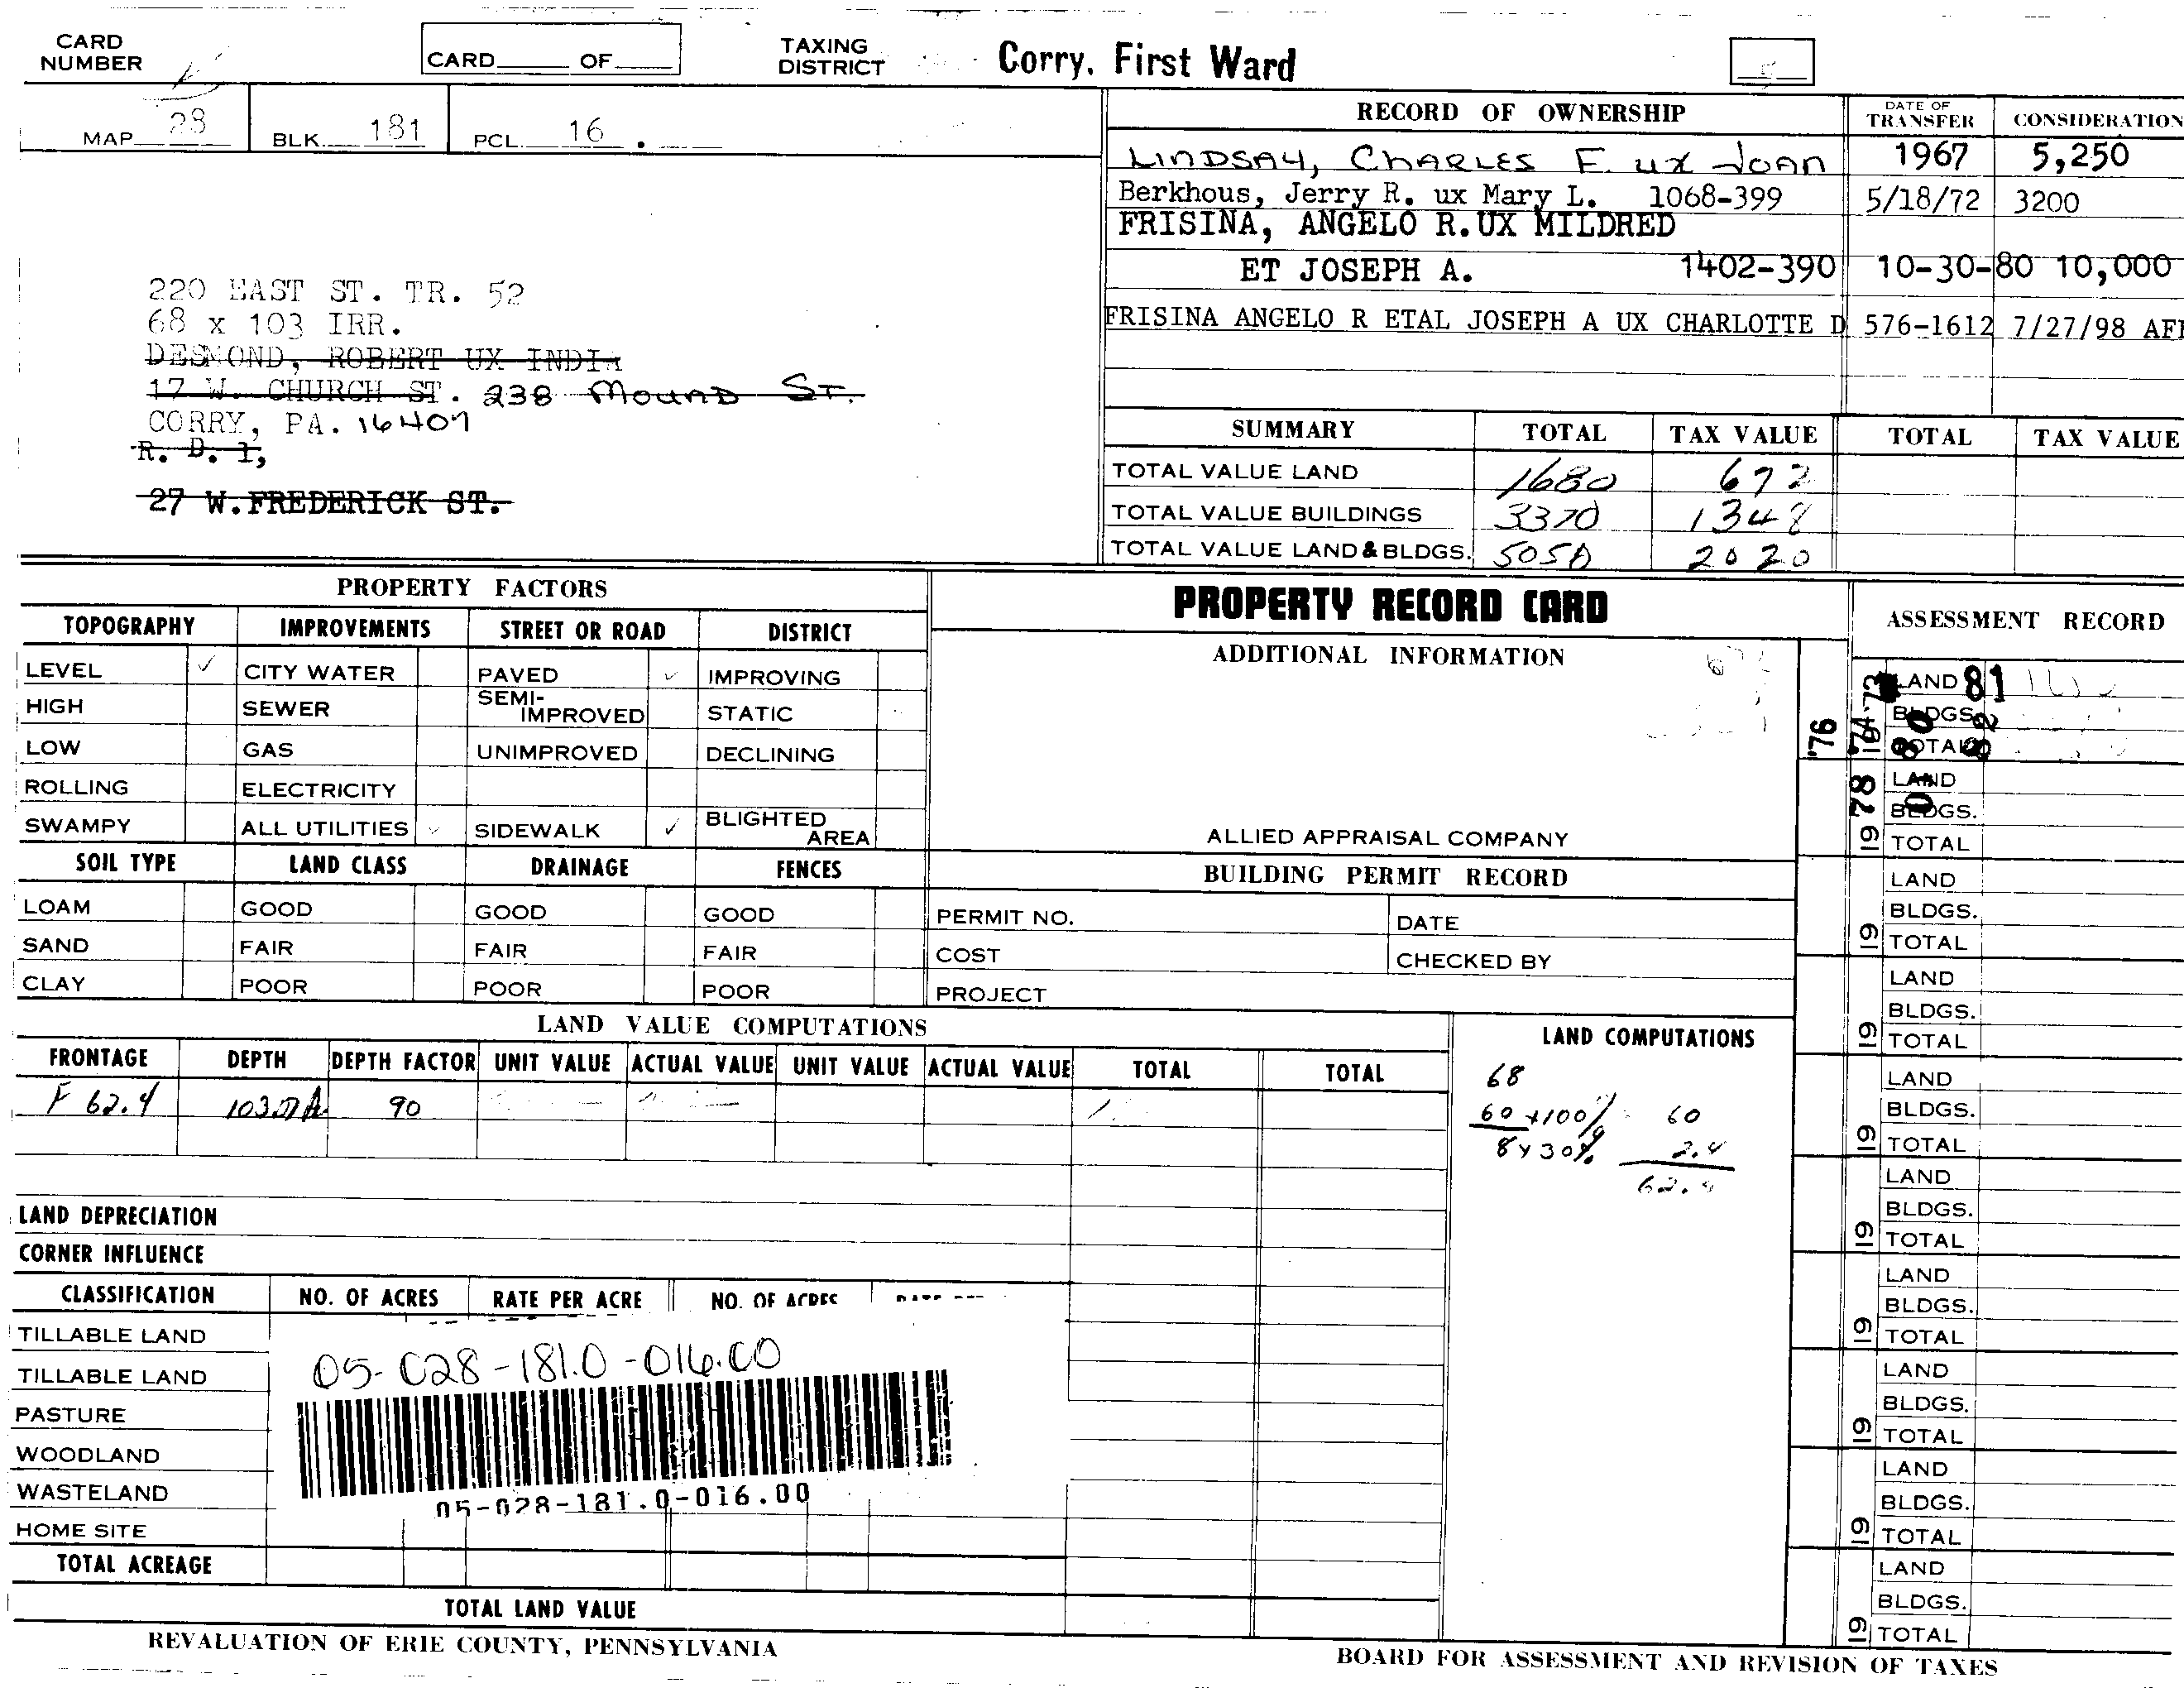 CARD NUMBER
CARD OF
TAXING DISTRICT Corry, First Ward
MAP 28 BLK. 181 PCL. 16 .
RECORD OF OWNERSHIP DATE OF TRANSFER CONSIDERATION
LINDSAY, CHARLES F. ux JOAN 1967 5,250
Berkhous, Jerry R. ux Mary L. 1068-399 5/18/72 3200
FRISINA, ANGELO R.UX MILDRED
ET JOSEPH A. 1402-390 10-30-80 10,000
FRISINA ANGELO R ETAL JOSEPH A UX CHARLOTTE D 576-1612 7/27/98
220 EAST ST. TR. 52
68 x 103 IRR.
DESMOND, ROBERT UX INDIA
17 W. CHURCH ST. 238 MOUND ST.
CORRY, PA. 16407
R. D. 1,
27 W.FREDERICK ST.
SUMMARY TOTAL TAX VALUE TOTAL TAX VALUE
TOTAL VALUE LAND 1680 672
TOTAL VALUE BUILDINGS 3370 1348
TOTAL VALUE LAND & BLDGS. 5050 2020
PROPERTY FACTORS
TOPOGRAPHY IMPROVEMENTS STREET OR ROAD DISTRICT
LEVEL ✓ CITY WATER PAVED ✓ IMPROVING
HIGH SEWER SEMI-IMPROVED STATIC
LOW GAS UNIMPROVED DECLINING
ROLLING ELECTRICITY
SWAMPY ALL UTILITIES ✓ SIDEWALK ✓ BLIGHTED AREA
SOIL TYPE LAND CLASS DRAINAGE FENCES
LOAM GOOD GOOD GOOD
SAND FAIR FAIR FAIR
CLAY POOR POOR POOR
PROPERTY RECORD CARD
ADDITIONAL INFORMATION
ALLIED APPRAISAL COMPANY
BUILDING PERMIT RECORD
PERMIT NO. DATE
COST CHECKED BY
PROJECT
ASSESSMENT RECORD
'76
78
LAND 81
BLDGS.
TOTAL
LAND
BLDGS.
19 TOTAL
LAND
BLDGS.
19 TOTAL
LAND
BLDGS.
19 TOTAL
LAND
BLDGS.
19 TOTAL
LAND
BLDGS.
19 TOTAL
LAND
BLDGS.
19 TOTAL
LAND
BLDGS.
19 TOTAL
LAND
BLDGS.
19 TOTAL
LAND
BLDGS.
19 TOTAL
LAND VALUE COMPUTATIONS
FRONTAGE DEPTH DEPTH FACTOR UNIT VALUE ACTUAL VALUE UNIT VALUE ACTUAL VALUE TOTAL TOTAL
F 62.4 90
LAND COMPUTATIONS
68
60 x100% 60
8 x 30% 2.4
62.4
LAND DEPRECIATION
CORNER INFLUENCE
CLASSIFICATION NO. OF ACRES RATE PER ACRE NO. OF ACRES
TILLABLE LAND
TILLABLE LAND
PASTURE
WOODLAND
WASTELAND
HOME SITE
TOTAL ACREAGE
05-028-181.0-016.00
05-028-181.0-016.00
TOTAL LAND VALUE
REVALUATION OF ERIE COUNTY, PENNSYLVANIA
BOARD FOR ASSESSMENT AND REVISION OF TAXES